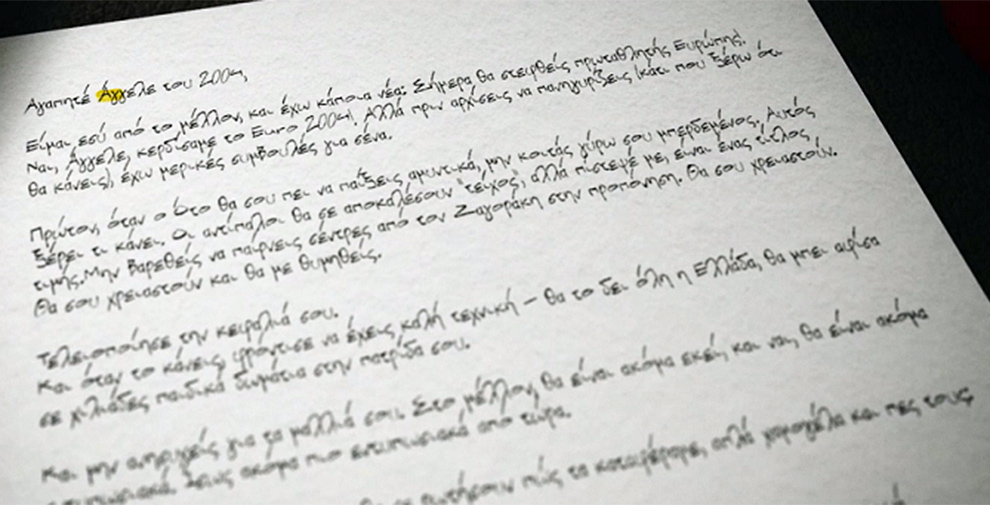 Αγαπητέ Άγγελε του 2004,
Είμαι εσύ από το μέλλον, και έχω κάποια νέα: Σήμερα θα στεφθείς πρωταθλητής Ευρώπης!
Ναι, Άγγελε, κερδίσαμε το Euro 2004! Αλλά πριν αρχίσεις να πανηγυρίζεις (κάτι που ξέρω ότι
θα κάνεις), έχω μερικές συμβουλές για σένα.
Πρώτον, όταν ο Ότο θα σου πει να παίξεις αμυντικά, μην κοιτάς γύρω σου μπερδεμένος. Αυτός
ξέρει τι κάνει. Οι αντίπαλοι θα σε αποκαλέσουν "τείχος", αλλά πίστεψέ με, είναι ένας τίτλος
τιμής. Μην βαρεθείς να παίρνεις σέντρες από τον Ζαγοράκη στην προπόνηση. Θα σου χρειαστούν.
Θα σου χρειαστούν και θα με θυμηθείς.
Τελειοποίησε την κεφαλιά σου.
Και όταν το κάνεις, φρόντισε να έχεις καλή τεχνική – θα το δει όλη η Ελλάδα, θα μπει αφίσα
σε χιλιάδες παιδικά δωμάτια στην πατρίδα σου.
Και μην ανησυχείς για τα μαλλιά σου. Στο μέλλον, θα είναι ακόμα εκεί, και ναι, θα είναι ακόμα
ακόμα πιο εντυπωσιακά από τώρα.
πώς τα καταφέραμε, απλά χαμογέλα και πες τους: